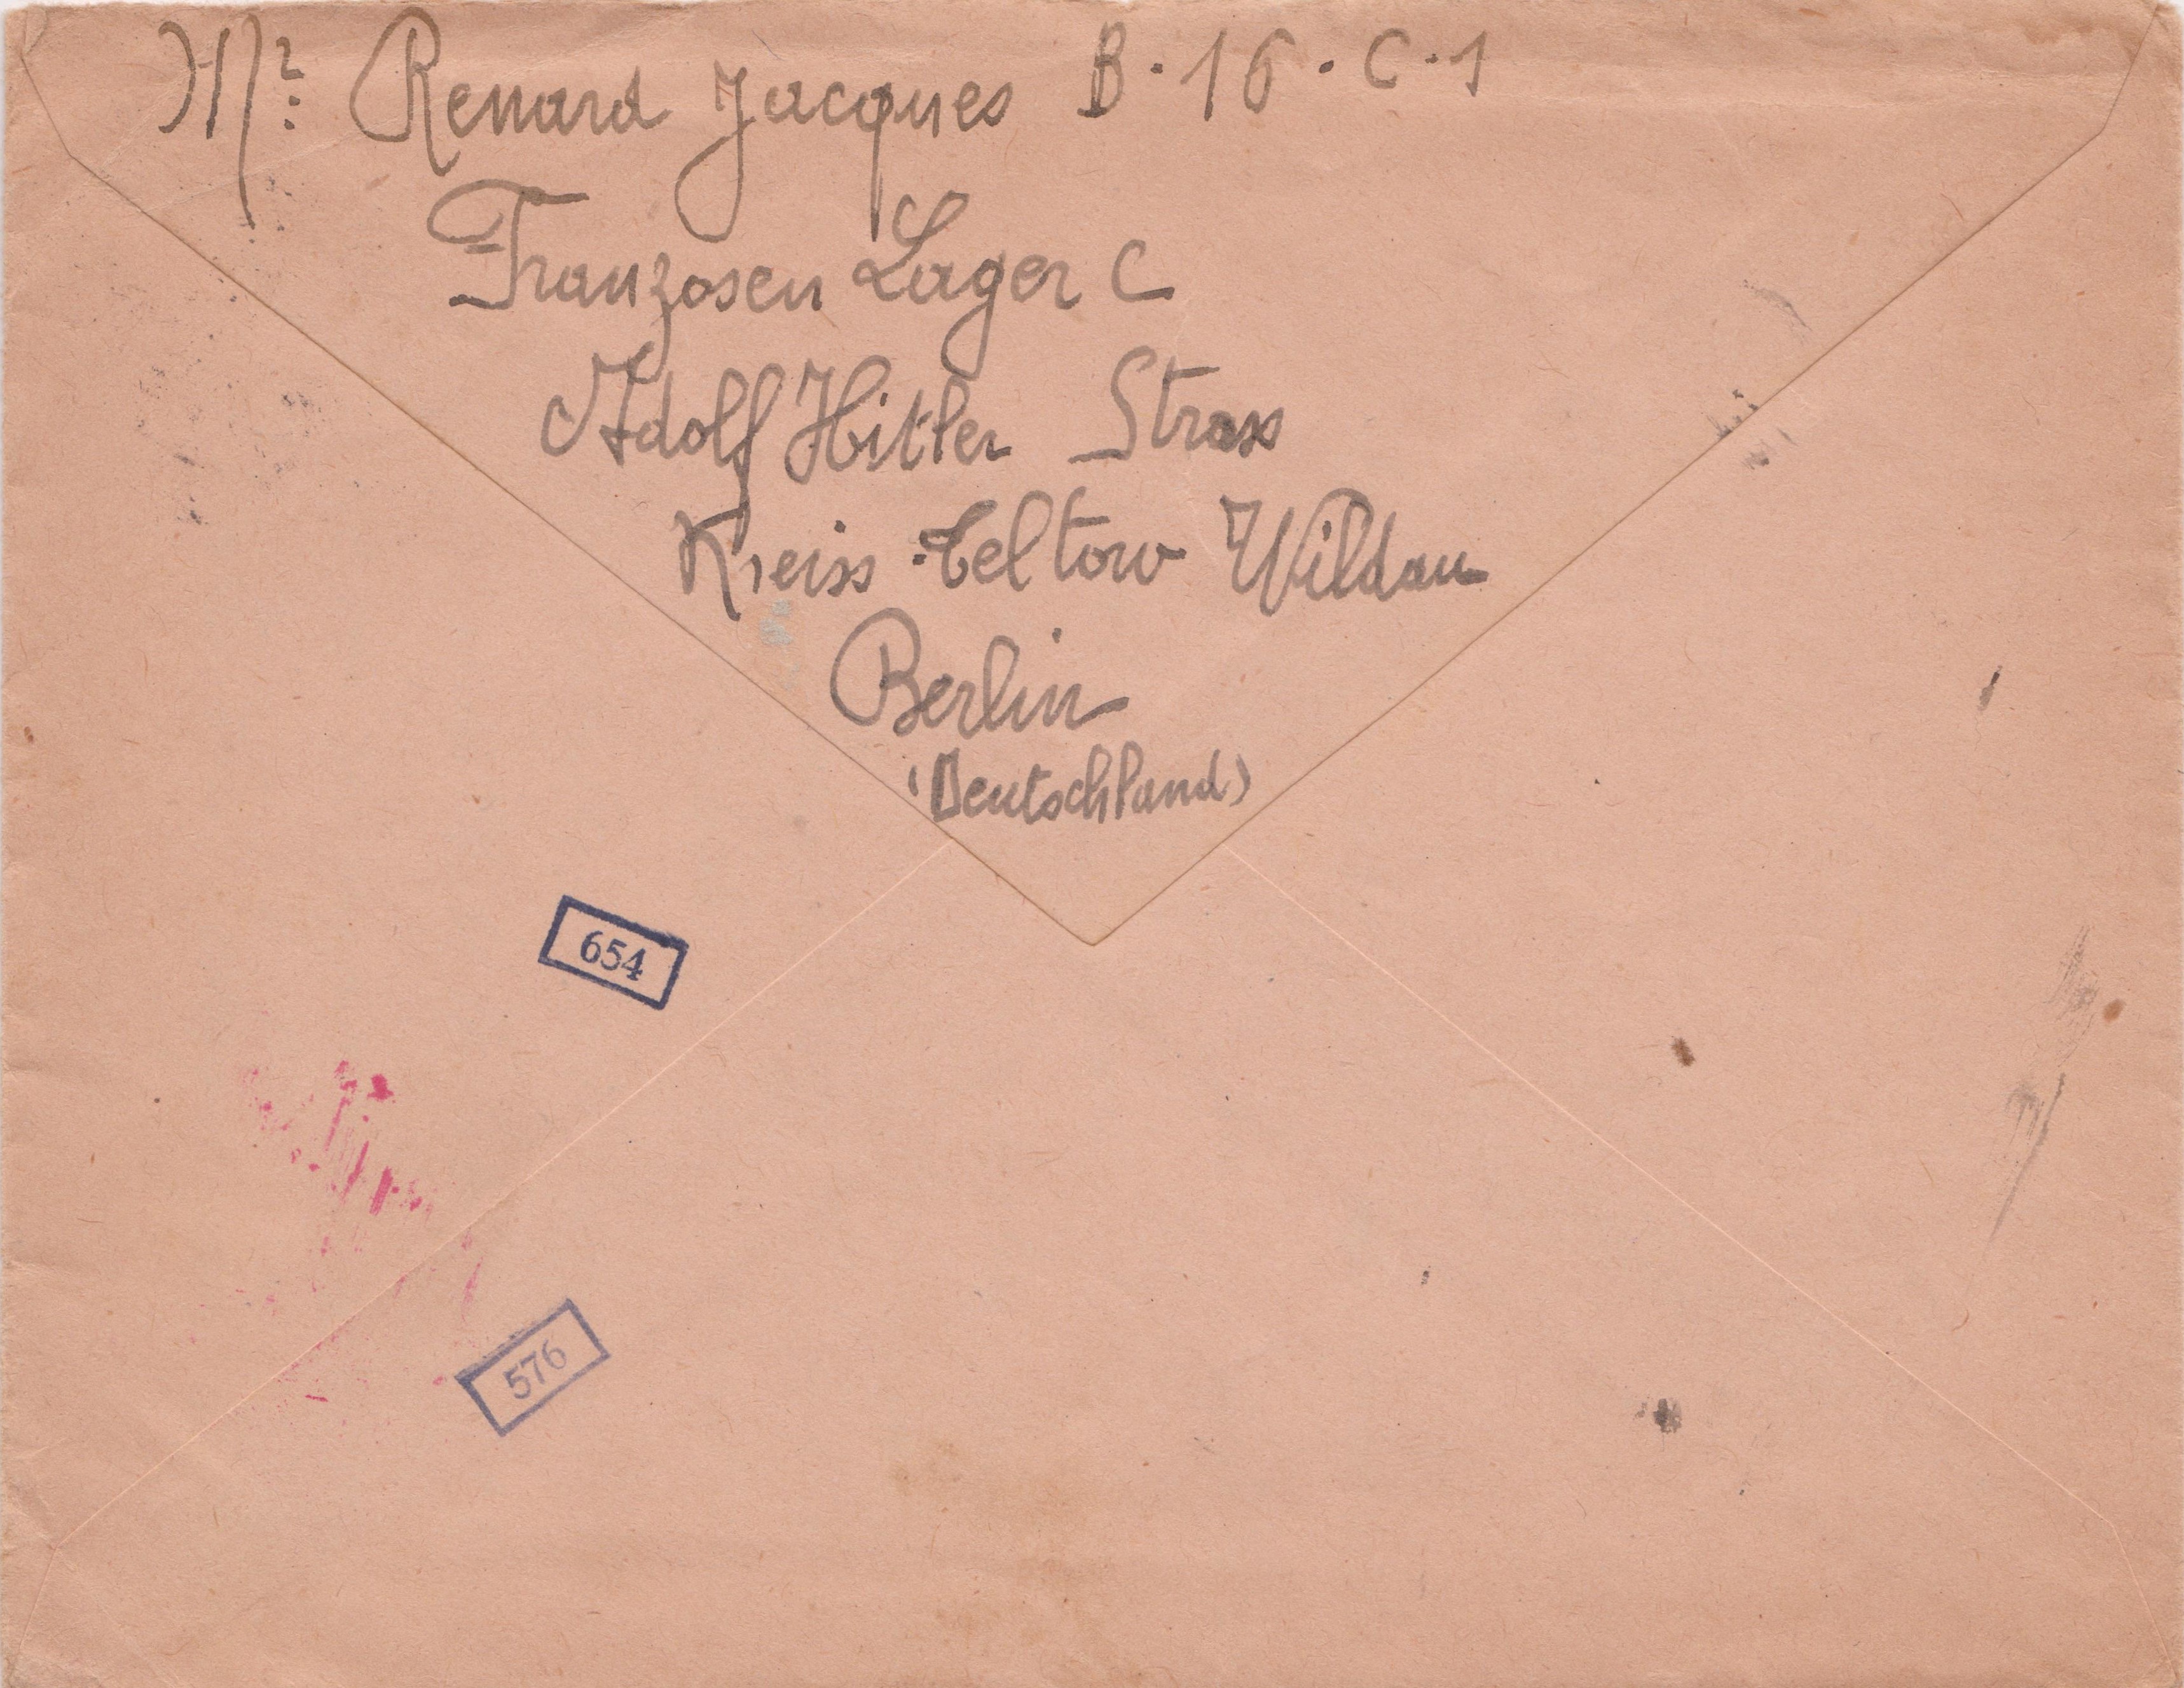 Mr Renard Jacques B.16.C.1
Franzosen Lager C
Adolf Hitler Strass
Kreiss Teltow Wildau
Berlin
(Deutschland)
654
576